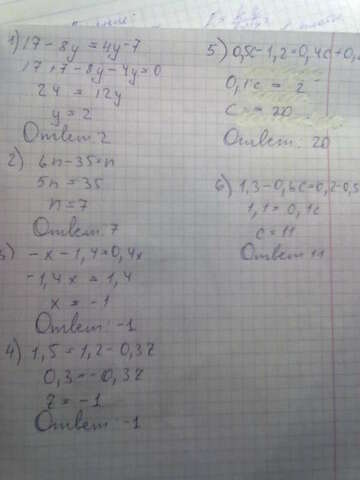 1) 17 - 8y = 4y - 7
17 + 7 - 8y - 4y = 0
24 = 12y
y = 2
Ответ: 2
2) 6n - 35 = n
5n = 35
n = 7
Ответ: 7
3) - x - 1,4 = 0,4x
-1,4x = 1,4
x = -1
Ответ: -1
4) 1,5 = 1,2 - 0,3z
0,3 = -0,3z
z = -1
Ответ: -1
5) 0,5c - 1,2 = 0,4c + 0,
0,1c = 2
c = 20
Ответ: 20
6) 1,3 - 0,4c = 0,2 - 0,5
1,1 = 0,1c
c = 11
Ответ 11